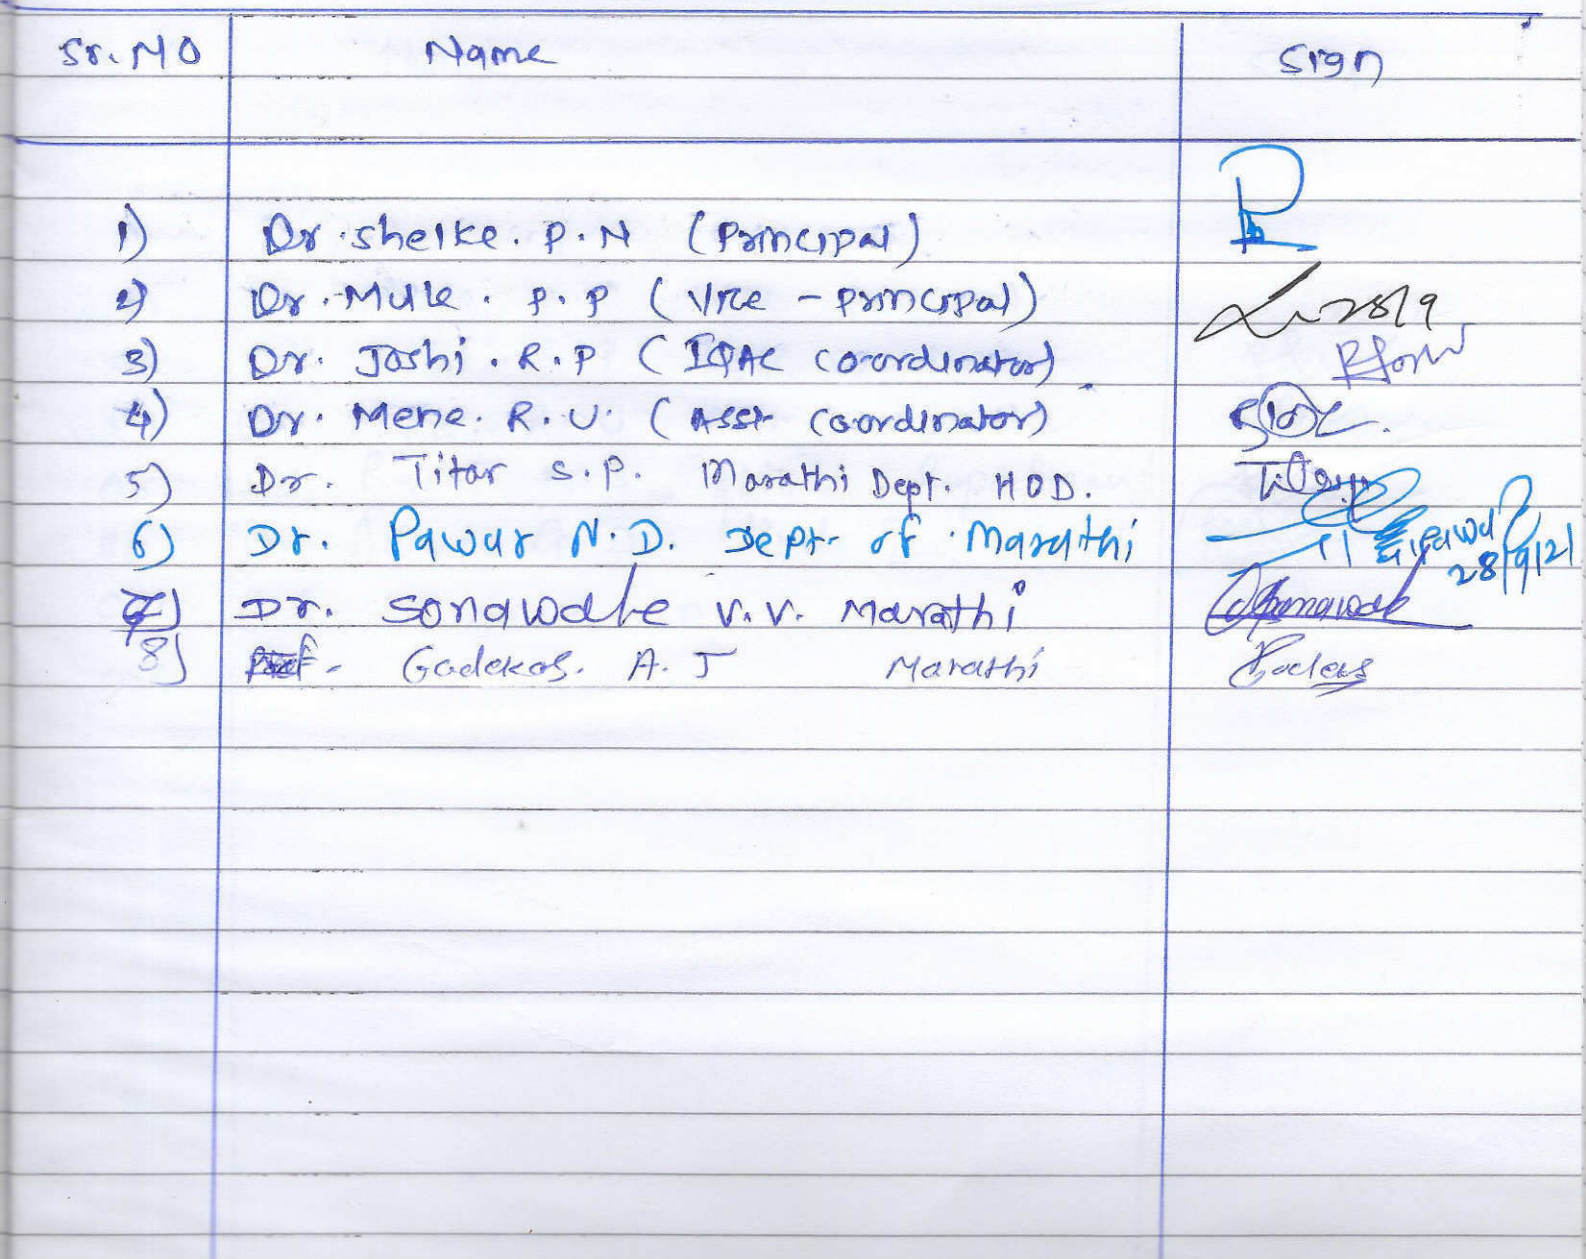 Sr. NO Name Sign
1) Dr. shelke. P. N (Principal)
2) Dr. Mule. P. P (Vice - principal) 28/9
3) Dr. Joshi. R. P (IQAC coordinator) RJoshi
4) Dr. Mene. R. U. (Asst coordinator)
5) Dr. Titar S. P. Marathi Dept. HOD.
6) Dr. Pawar N. D. Dept. of Marathi 28/9/21
7) Dr. Sonawale V. V. Marathi
8) Prof. Gadekar. A. J Marathi